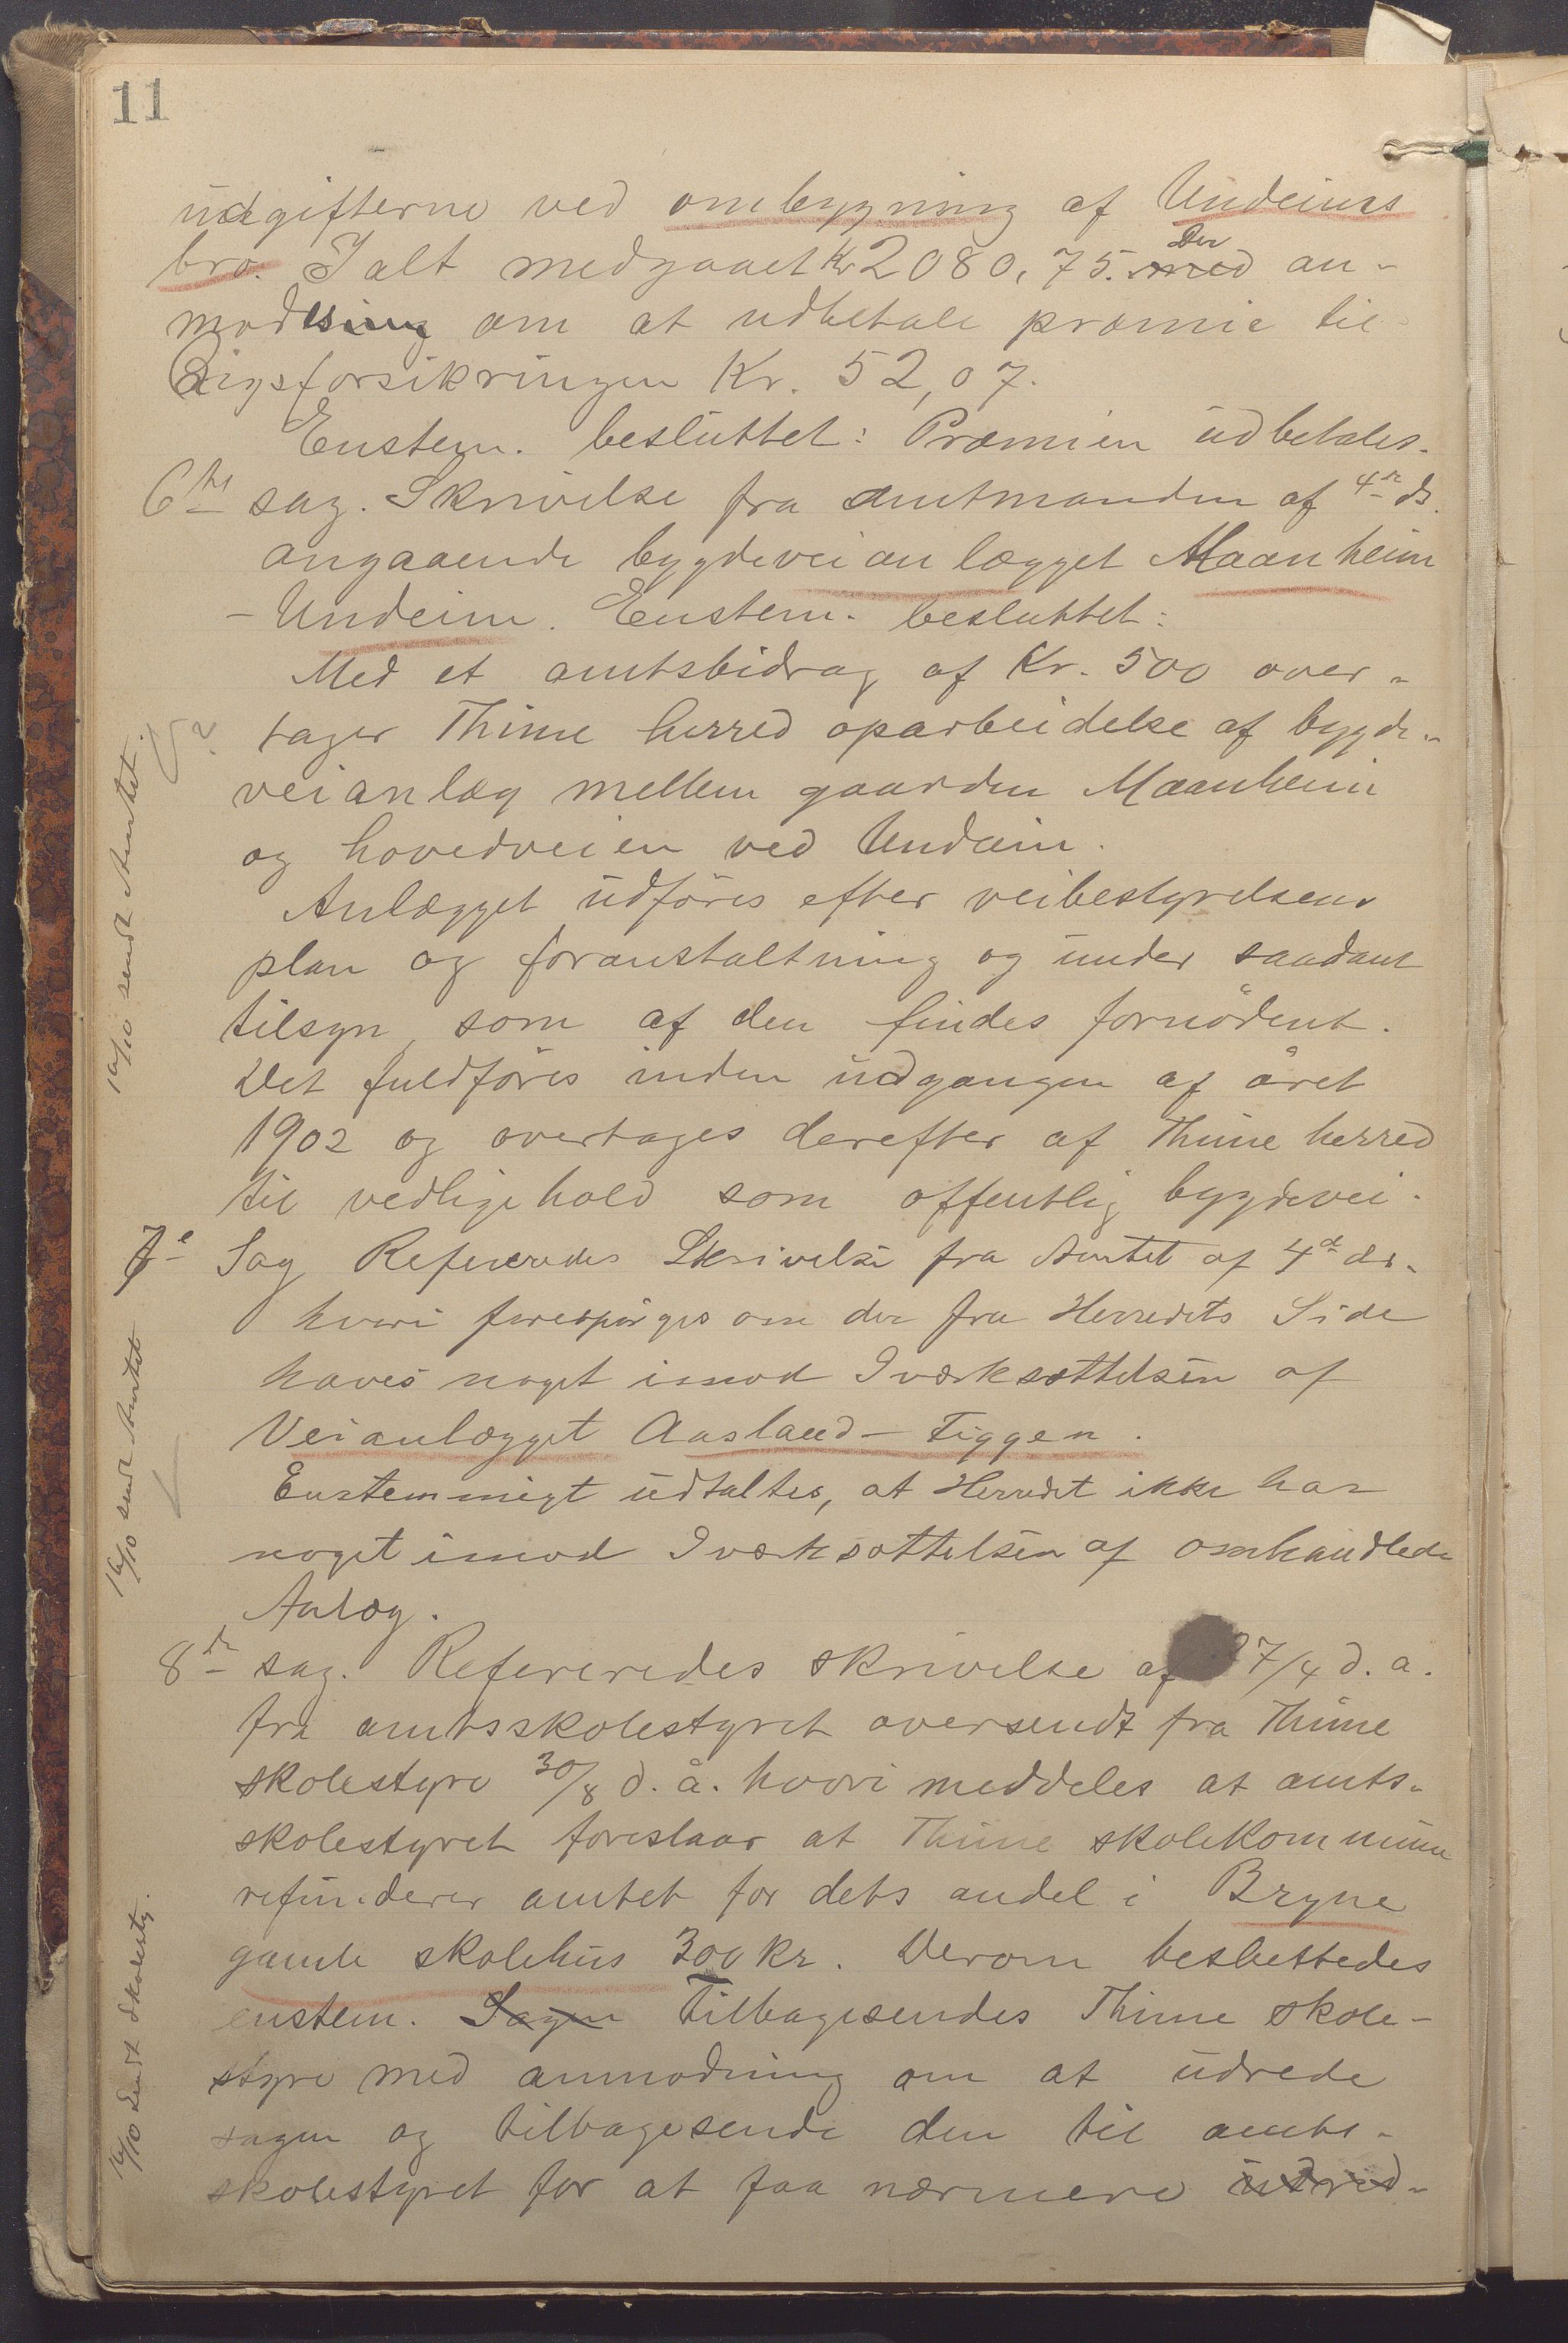 11
udgifterne ved ombygning af Undeims
bro. Ialt medgaaet Kr 2080,75. med Der an-
modes om at udbetale præmie til
Rigsforsikringen Kr. 52,07.
Enstem. besluttet: Præmien udbetales.
6te sag. Skrivelse fra amtmanden af 4de ds.
angaaende bygdeveianlægget Maanheim
- Undeim. Enstem. besluttet:
Med et amtsbidrag af Kr. 500 over-
tager Thime herred oparbeidelse af bygde-
veianlæg mellem gaarden Maanheim
og hovedveien ved Undeim.
Anlægget udføres efter veibestyrelsens
plan og foranstaltning og under saadant
tilsyn, som af den findes fornødent.
Det fuldføres inden udgangen af året
1902 og overtages derefter af Thime herred
til vedligehold som offentlig bygdevei.
16/10 sendt Amtet.
7e Sag Refereredes Skrivelse fra Amtet af 4de ds.
hvori forespørges om der fra Herredets Side
haves noget imod Iværksættelsen af
Veianlægget Aasland - Tiggen.
Enstemmigt udtaltes, at Herredet ikke har
noget imod Iværksættelsen af omhandlede
Anlæg.
16/10 sendt Amtet
8de sag. Refereredes skrivelse af 27/4 d. a.
fra amtsskolestyret oversendt fra Thime
skolestyre 30/8 d. å. hvori meddeles at amts-
skolestyret foreslaar at Thime skolekommune
refunderer amtet for dets andel i Bryne
gamle skolehus 300 kr. Derom besluttedes
enstem. Sagen Tilbagesendes Thime skole-
styre med anmodning om at udrede
sagen og tilbagesende den til amts-
skolestyret for at faa nærmere udred-
16/10 Sendt Skolesty.